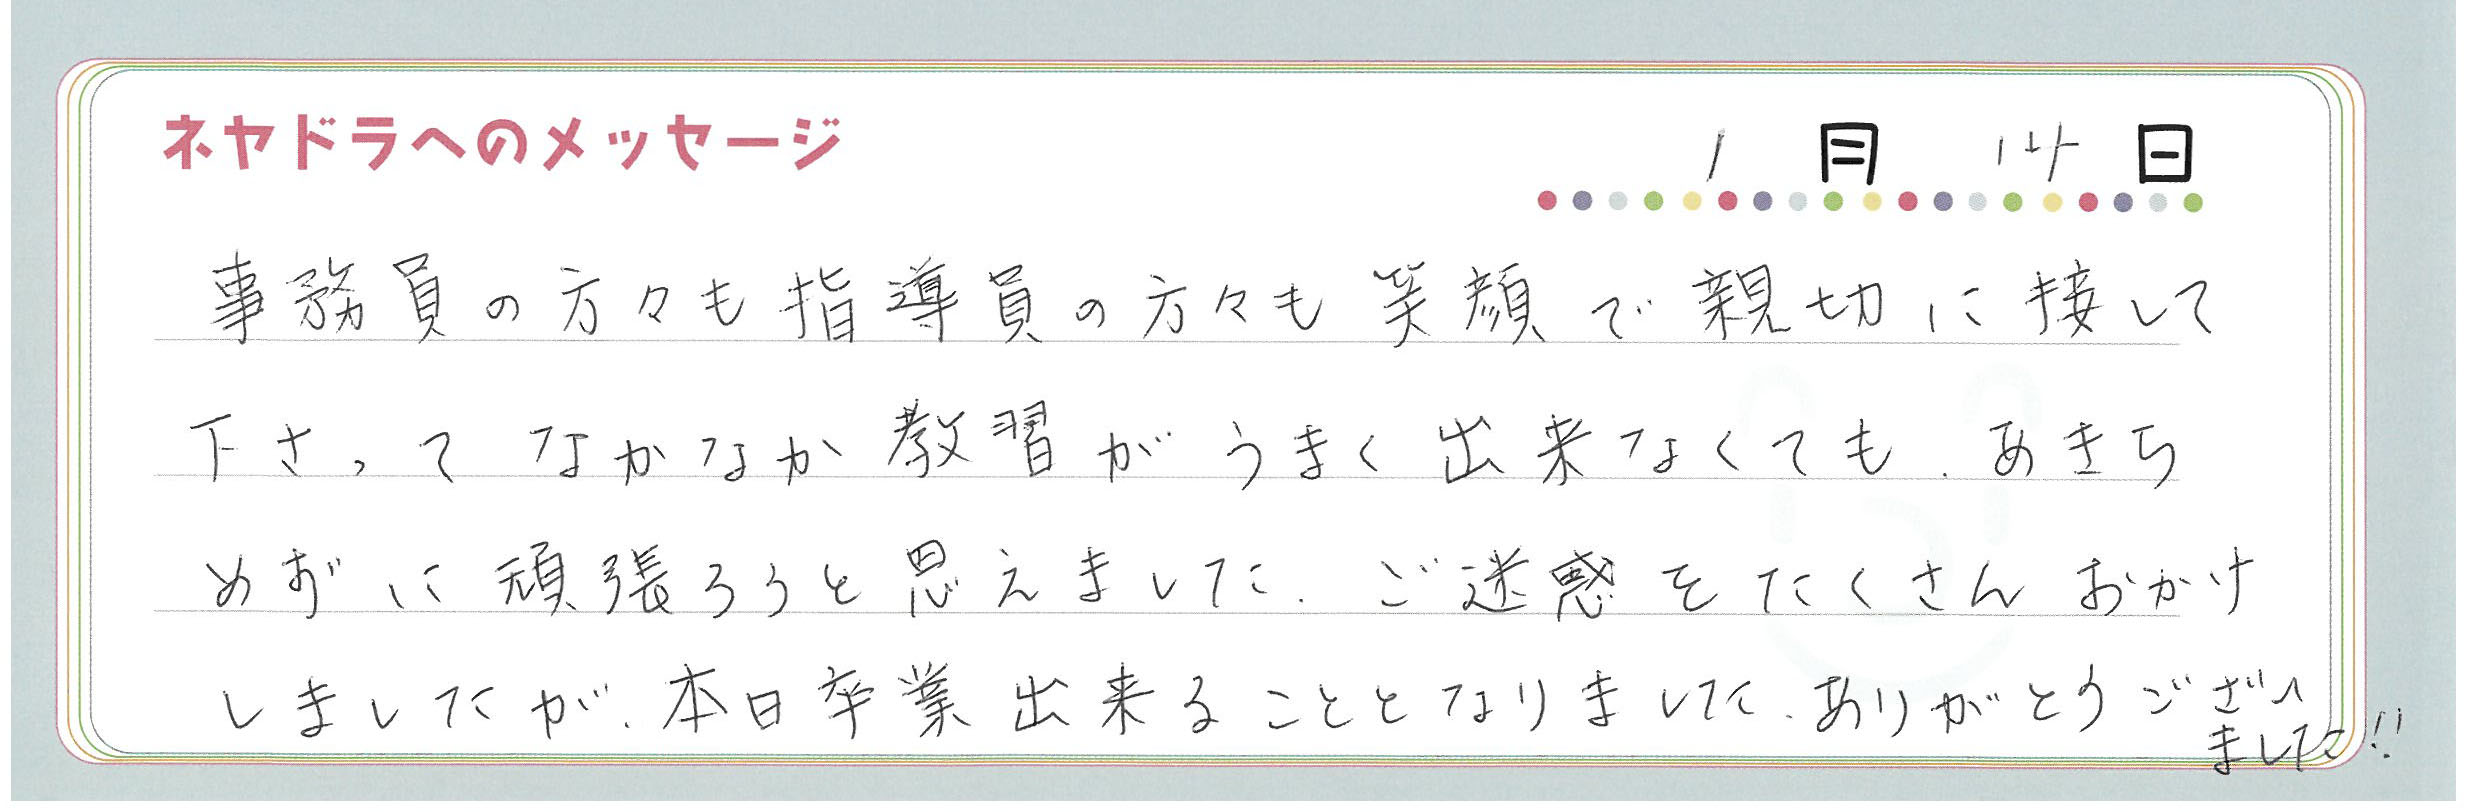 ネヤドラへのメッセージ
1月 14日
事務員の方々も指導員の方々も笑顔で親切に接して
下さって なかなか教習がうまく出来なくても、あきら
めずに頑張ろうと思えました。ご迷惑をたくさんおかけ
しましたが、本日卒業出来ることとなりました。ありがとうござい
ました!!